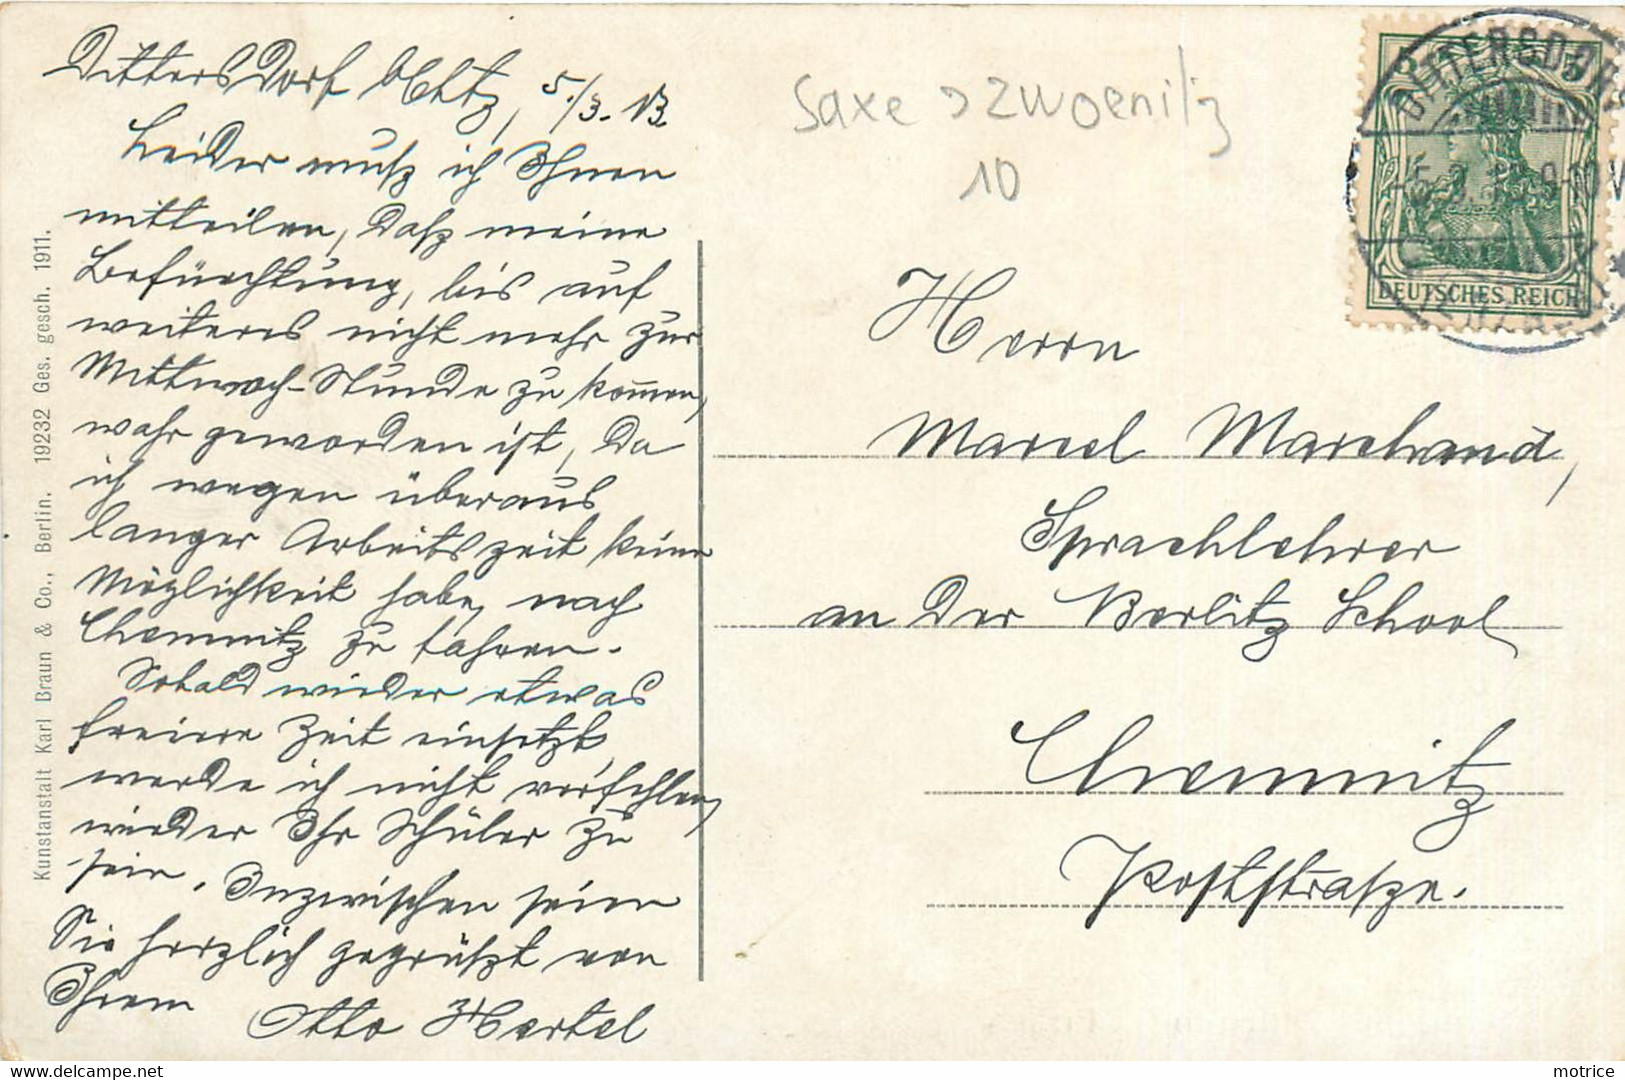 Dittersdorf b/Chtz, 5./3. 13.
Leider muß ich Ihnen
mitteilen, daß meine
Befürchtung, bis auf
weiteres nicht mehr zur
Mittwoch-Stunde zu kommen,
wahr geworden ist, da
ich wegen überaus
langer Arbeitszeit keine
Möglichkeit habe, nach
Chemnitz zu fahren.
Sobald wieder etwas
freiere Zeit einsetzt,
werde ich nicht verfehlen,
wieder Ihr Schüler zu
sein. Inzwischen seien
Sie herzlich gegrüßt von
Ihrem Otto Hertel
Kunstanstalt Karl Braun & Co., Berlin. 19232 Ges. gesch. 1911.
Saxe > Zwoenitz
10
DITTERSDORF
5.3.13. 9-10V
DEUTSCHES REICH
Herrn
Marcel Marchand,
Sprachlehrer
an der Berlitz School
Chemnitz
Poststraße.
motrice
delcampe.net